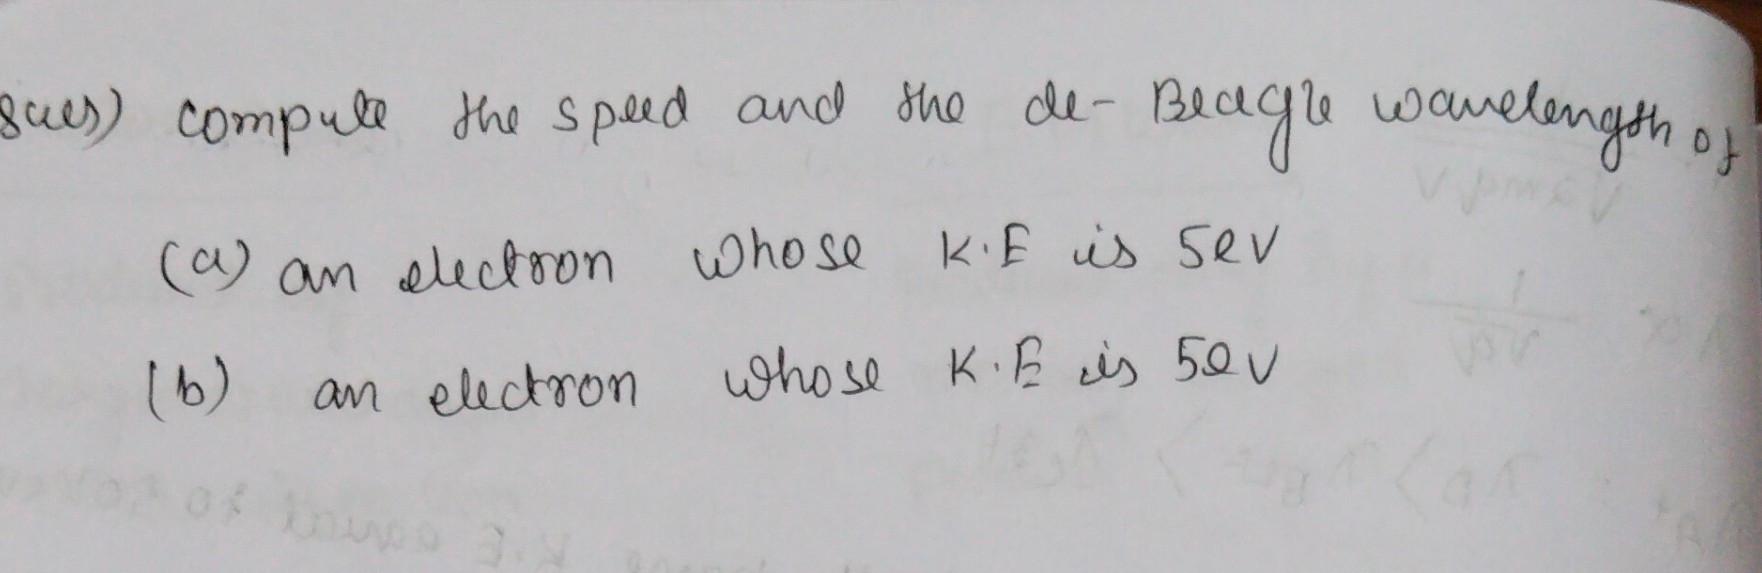 Ques) compute the speed and the de-Beagle wavelength of
(a) an electron whose K.E is 5eV
(b) an electron whose K.E is 5eV